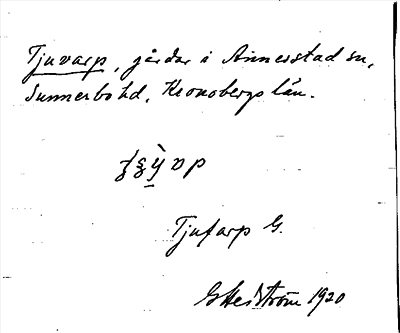 Tjuvarp, gårdar i Annerstad sn,
Sunnerbo hd, Kronobergs län.
Tjufarp G.
G Hedström 1920